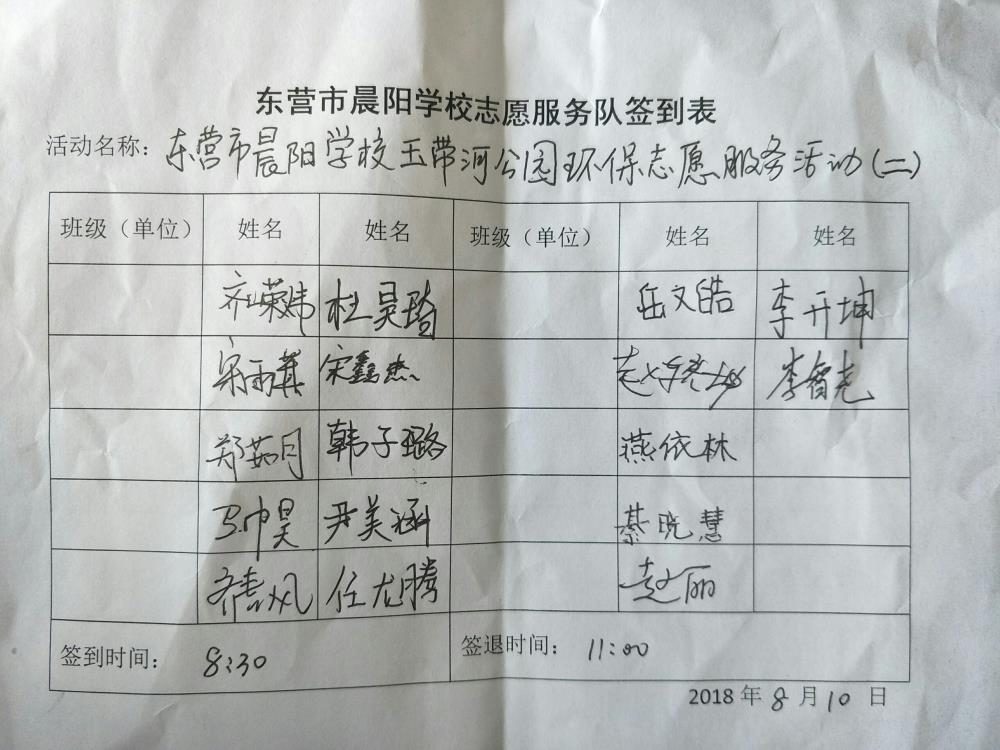 东营市晨阳学校志愿服务队签到表
活动名称：东营市晨阳学校玉带河公园环保志愿服务活动(二)
班级（单位） 姓名 姓名 班级（单位） 姓名 姓名
齐荣炜 杜昊琦 岳文皓 李开坤
宋雨萁 宋鑫杰 李智尧
郑茹月 韩子璐 燕依林
马帅昊 尹美涵 綦晓慧
齐清风 任龙腾 赵丽
签到时间： 8:30 签退时间： 11:00
2018 年 8 月 10 日